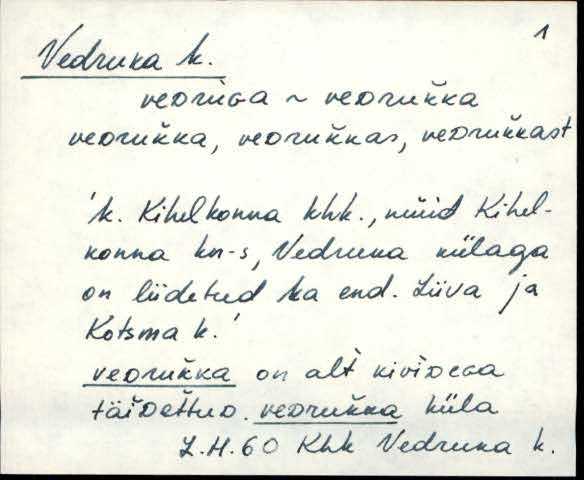 1
Vedruka k.
veᴅruɢa ~ veᴅruk̆ka
veᴅruk̆ka, veᴅruk̆kas, veᴅruk̆kast
'k. Kihelkonna khk., nüüd Kihel-
konna kn-s, Vedruka külaga
on liidetud ka end. Liiva ja
Kotsma k.'
veᴅruk̆ka on alt̆ kiviᴅeɢa
täiᴅet̆tuᴅ. veᴅruk̆ka küla
L.H. 60 Khk Vedruka k.